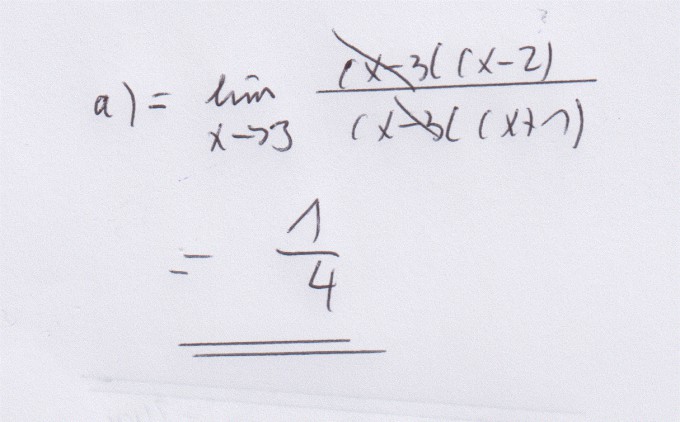 a) = lim (x-3)(x-2)
x->3 (x-3)(x+1)
= 1
4